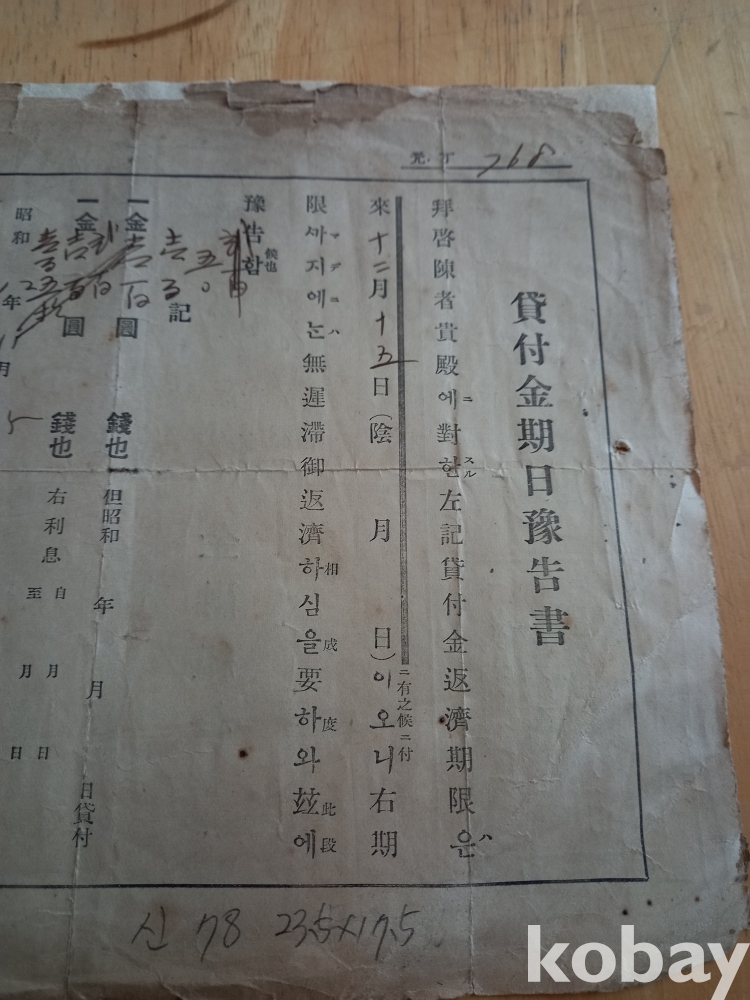 元丁 768
貸付金期日豫告書
拜啓陳者貴殿에對한左記貸付金返濟期限은
ニ スル ハ
來十二月十五日(陰 月 日)이오니右期
ニ有之候ニ付
限까지에는無遲滯御返濟하심을要하와玆에
マデニハ 相成度此段
豫告함
候也
記
一金 壱百 圓 錢也 但昭和 年 月 日貸付
一金 圓 錢也 右利息 自 月 日 至 月 日
昭和 年 月
신 78 23.5×17.5
kobay